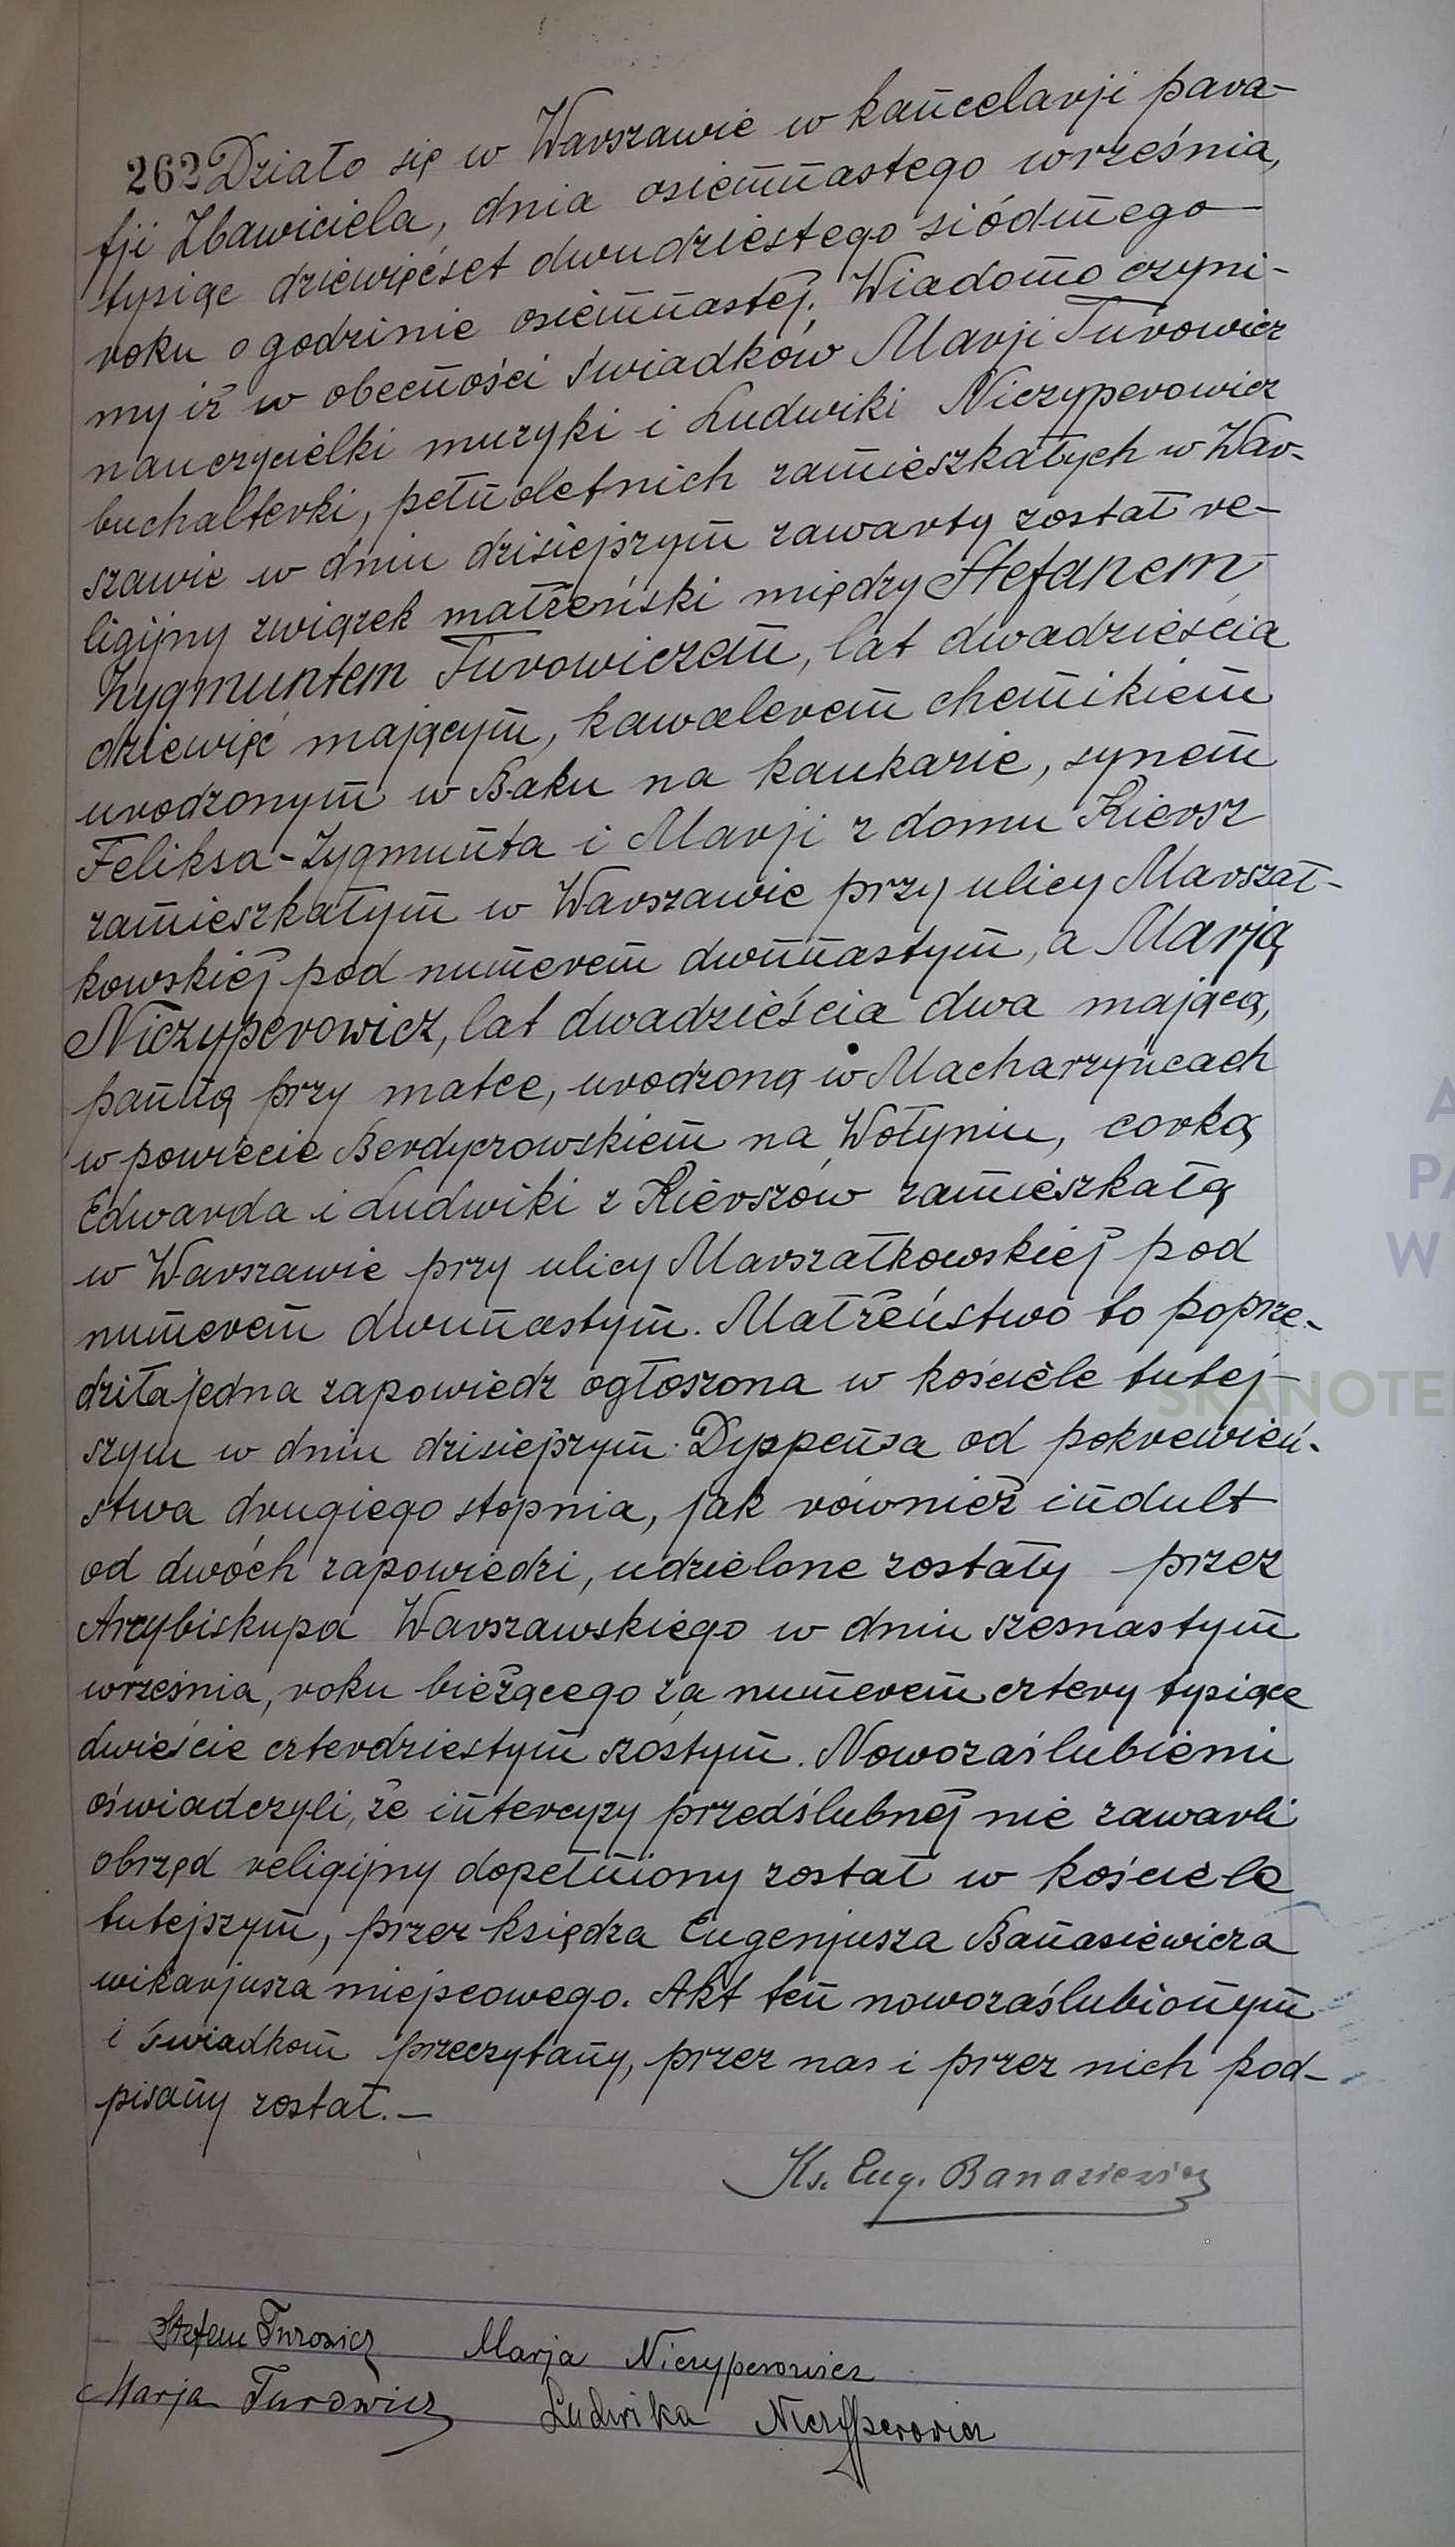 262 Działo się w Warszawie w kancelarji para-
fji Zbawiciela, dnia osiemnastego września,
tysiąc dziewięćset dwudziestego siódmego
roku o godzinie osiemnastej. Wiadomo czyni-
my iż w obecności świadków Marji Turowicz
nauczycielki muzyki i Ludwiki Niczyperowicz
buchalterki, pełnoletnich zamieszkałych w War-
szawie w dniu dzisiejszym zawarty został re-
ligijny związek małżeński między Stefanem
Zygmuntem Turowiczem, lat dwadzieścia
dziewięć mającym, kawalerem chemikiem
urodzonym w Baku na kaukazie, synem
Feliksa-Zygmunta i Marji z domu Kiersz
zamieszkałym w Warszawie przy ulicy Marszał-
kowskiej pod numerem dwunastym, a Marją
Niczyperowicz, lat dwadzieścia dwa mającą,
panną przy matce, urodzoną w Macharzyńcach
w powiecie Berdyczowskiem na Wołyniu, corką
Edwarda i Ludwiki z Kierszów zamieszkałą
w Warszawie przy ulicy Marszałkowskiej pod
numerem dwunastym. Małżeństwo to poprze-
dziła jedna zapowiedz ogłoszona w kościele tutej-
szym w dniu dzisiejszym. Dyspensa od pokrewień-
stwa drugiego stopnia, jak również indult
od dwóch zapowiedzi, udzielone zostały przez
Arcybiskupa Warszawskiego w dniu szesnastym
września, roku bieżącego za numerem cztery tysiące
dwieście czterdziestym szóstym. Nowozaślubieni
oświadczyli, że intercyzy przedślubnej nie zawarli
obrzęd religijny dopełniony został w kościele
tutejszym, przez księdza Eugenjusza Banasiewicza
wikarjusza miejscowego. Akt ten nowozaślubionym
i świadkom przeczytany, przez nas i przez nich pod-
pisany został.—
Ks. Eug. Banasiewicz
Stefan Turowicz Marja Niczyperowicz
Marja Turowicz Ludwika Niczyperowicz
A
PA
W
SKANOTE